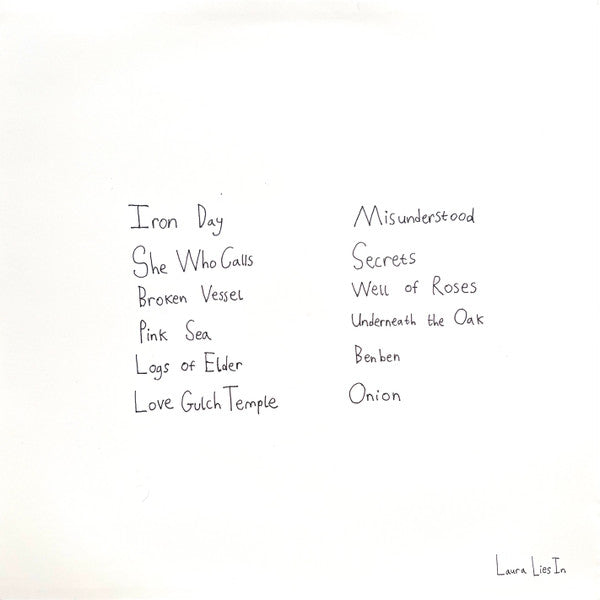 Iron Day
She Who Calls
Broken Vessel
Pink Sea
Logs of Elder
Love Gulch Temple
Misunderstood
Secrets
Well of Roses
Underneath the Oak
Benben
Onion
Laura Lies In